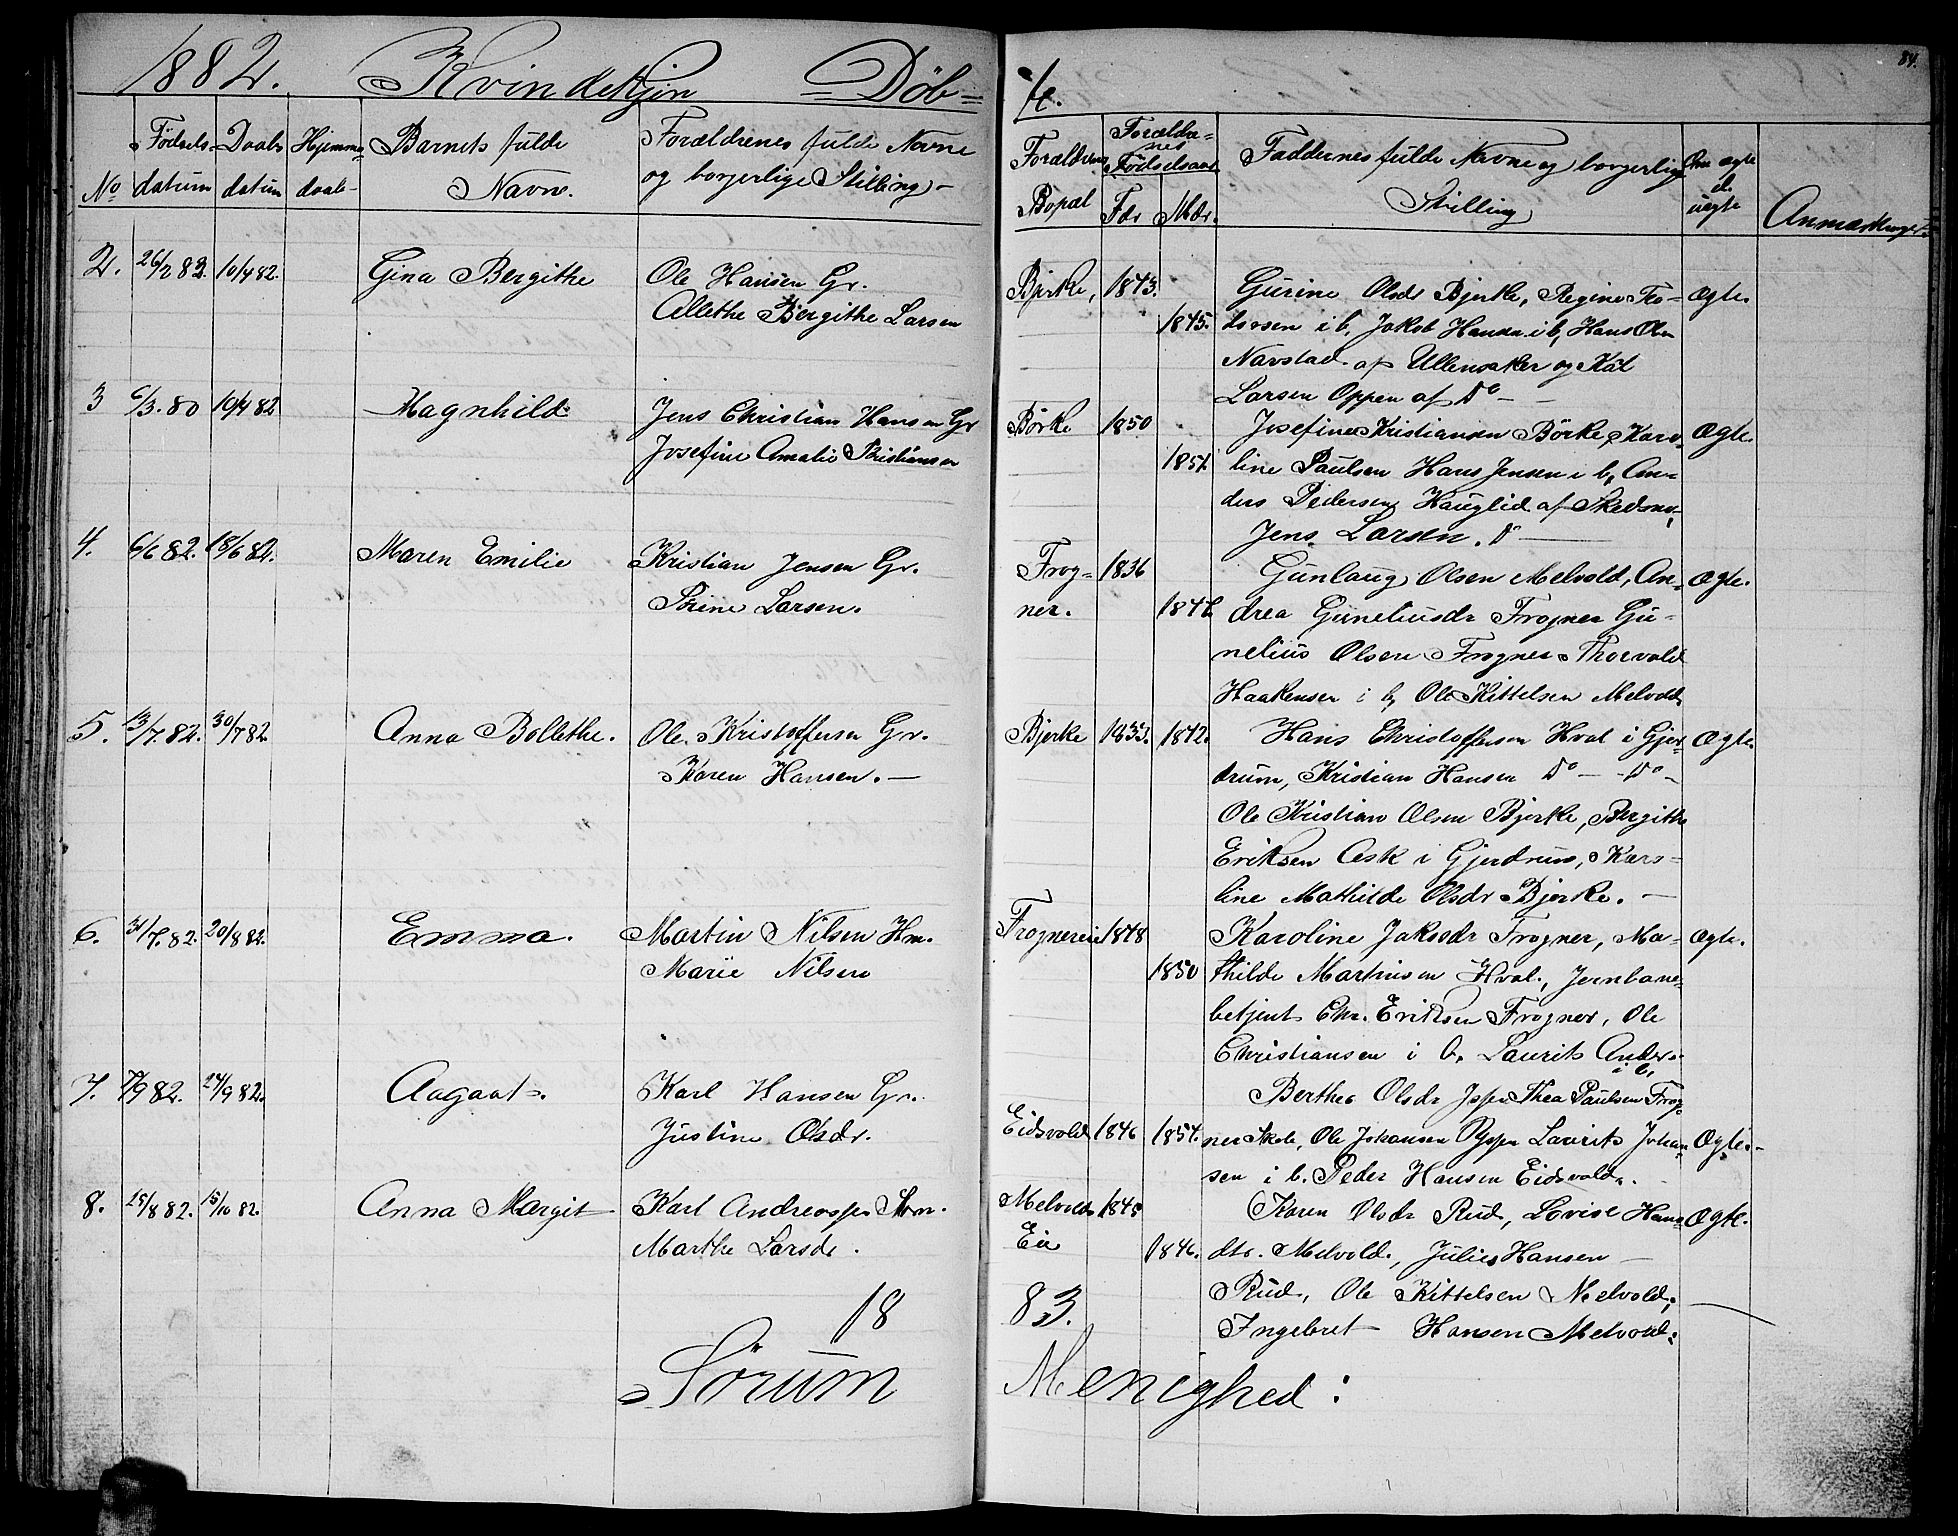 84.
1882. Kvindekjøn Døb-
te.
No Fødsels- datum Daabs datum Hjemme- daab- Barnets fulde Navn. Forældrenes fulde Navne og borgerlige Stilling-
Forældrenes Bopæl Forældre- nes Fødselsaar Far Mær. Faddernes fulde Navne og borgerlig Stilling Om ægte el. uægte Anmærkninger
2. 26/2 82. 10/4 82. Gina Bergithe Ole Hansen Gr.
Allethe Bergithe Larsen
Bjerke, 1843. Gurine Olsdr Bjerke, Regine Teo- Ægte.
1845. dorsen i b, Jakob Hansen i b, Hans Olsen
Navstad af Ullensaker og Kal
Larsen Oppen af Do -
3 6/3. 80 10/4 82 Magnhild. Jens Christian Hansen Gr
Josefine Amalie Kristiansen
Børke 1850 Josefine Kristiansen Børke, Karo- Ægte.
1851. line Paulsen Hans Jensen i b, An-
ders Pedersen Hauglid af Skedsmo,
Jens Larsen. Do
4. 6/6 82. 18/6 82. Maren Emilie Kristian Jensen Gr.
Trine Larsen.
Frog- 1836 Gunlaug Olsen Melvold, An- Ægte.
ner. 184 drea Guneliusdr Frogner Gu-
nelius Olsen Frogner Thorvald
Haakensen i b, Ole Kittelsen Melvold
5. 13/7. 82. 30/7 82. Anna Bollethe. Ole Kristoffersen Gr.
Karen Hansen. -
Bjerke 1833. 1842. Hans Christoffersen Hval i Gjer- Ægte.
drum, Kristian Hansen Do - Do -
Ole Kristian Olsen Bjerke, Bergithe
Eriksen Ask i Gjerdrum, Karo-
line Mathilde Olsdr Bjerke. -
6. 31/7. 82. 20/8 82. Emma. Martin Nilsen Hm.
Marie Nilsen
Frognereie 1848 Karoline Jaksdr Frogner, Ma- Ægte.
1850 thilde Martinsen Hval, Jernbane-
betjent Chr. Eriksen Frogner, Ole
Christiansen i b. Laurits Anders.
i b,
7. 7/9 82. 24/9 82. Aagaat. Karl Hansen Gr.
Justine Olsdr.
Berthea Olsdr Thea Paulsen Frog-
Eidsvold 1846 1854. ner Skole, Ole Johansen Laurits Johan- Ægte.
sen i b. Peder Hansen Eidsvold.
8. 15/8 82. 15/10 82. Anna Margit Karl Andreas
Marthe Larsdr.
Melvolds 1845 Karen Olsdr Rud, Lovise Hans- Ægte.
Eie 1846. dtr. Melvold, Julius Hansen
Rud, Ole Kittelsen Melvold,
Ingebret Hansen Melvold.
18 83.
Sørum Menighed: